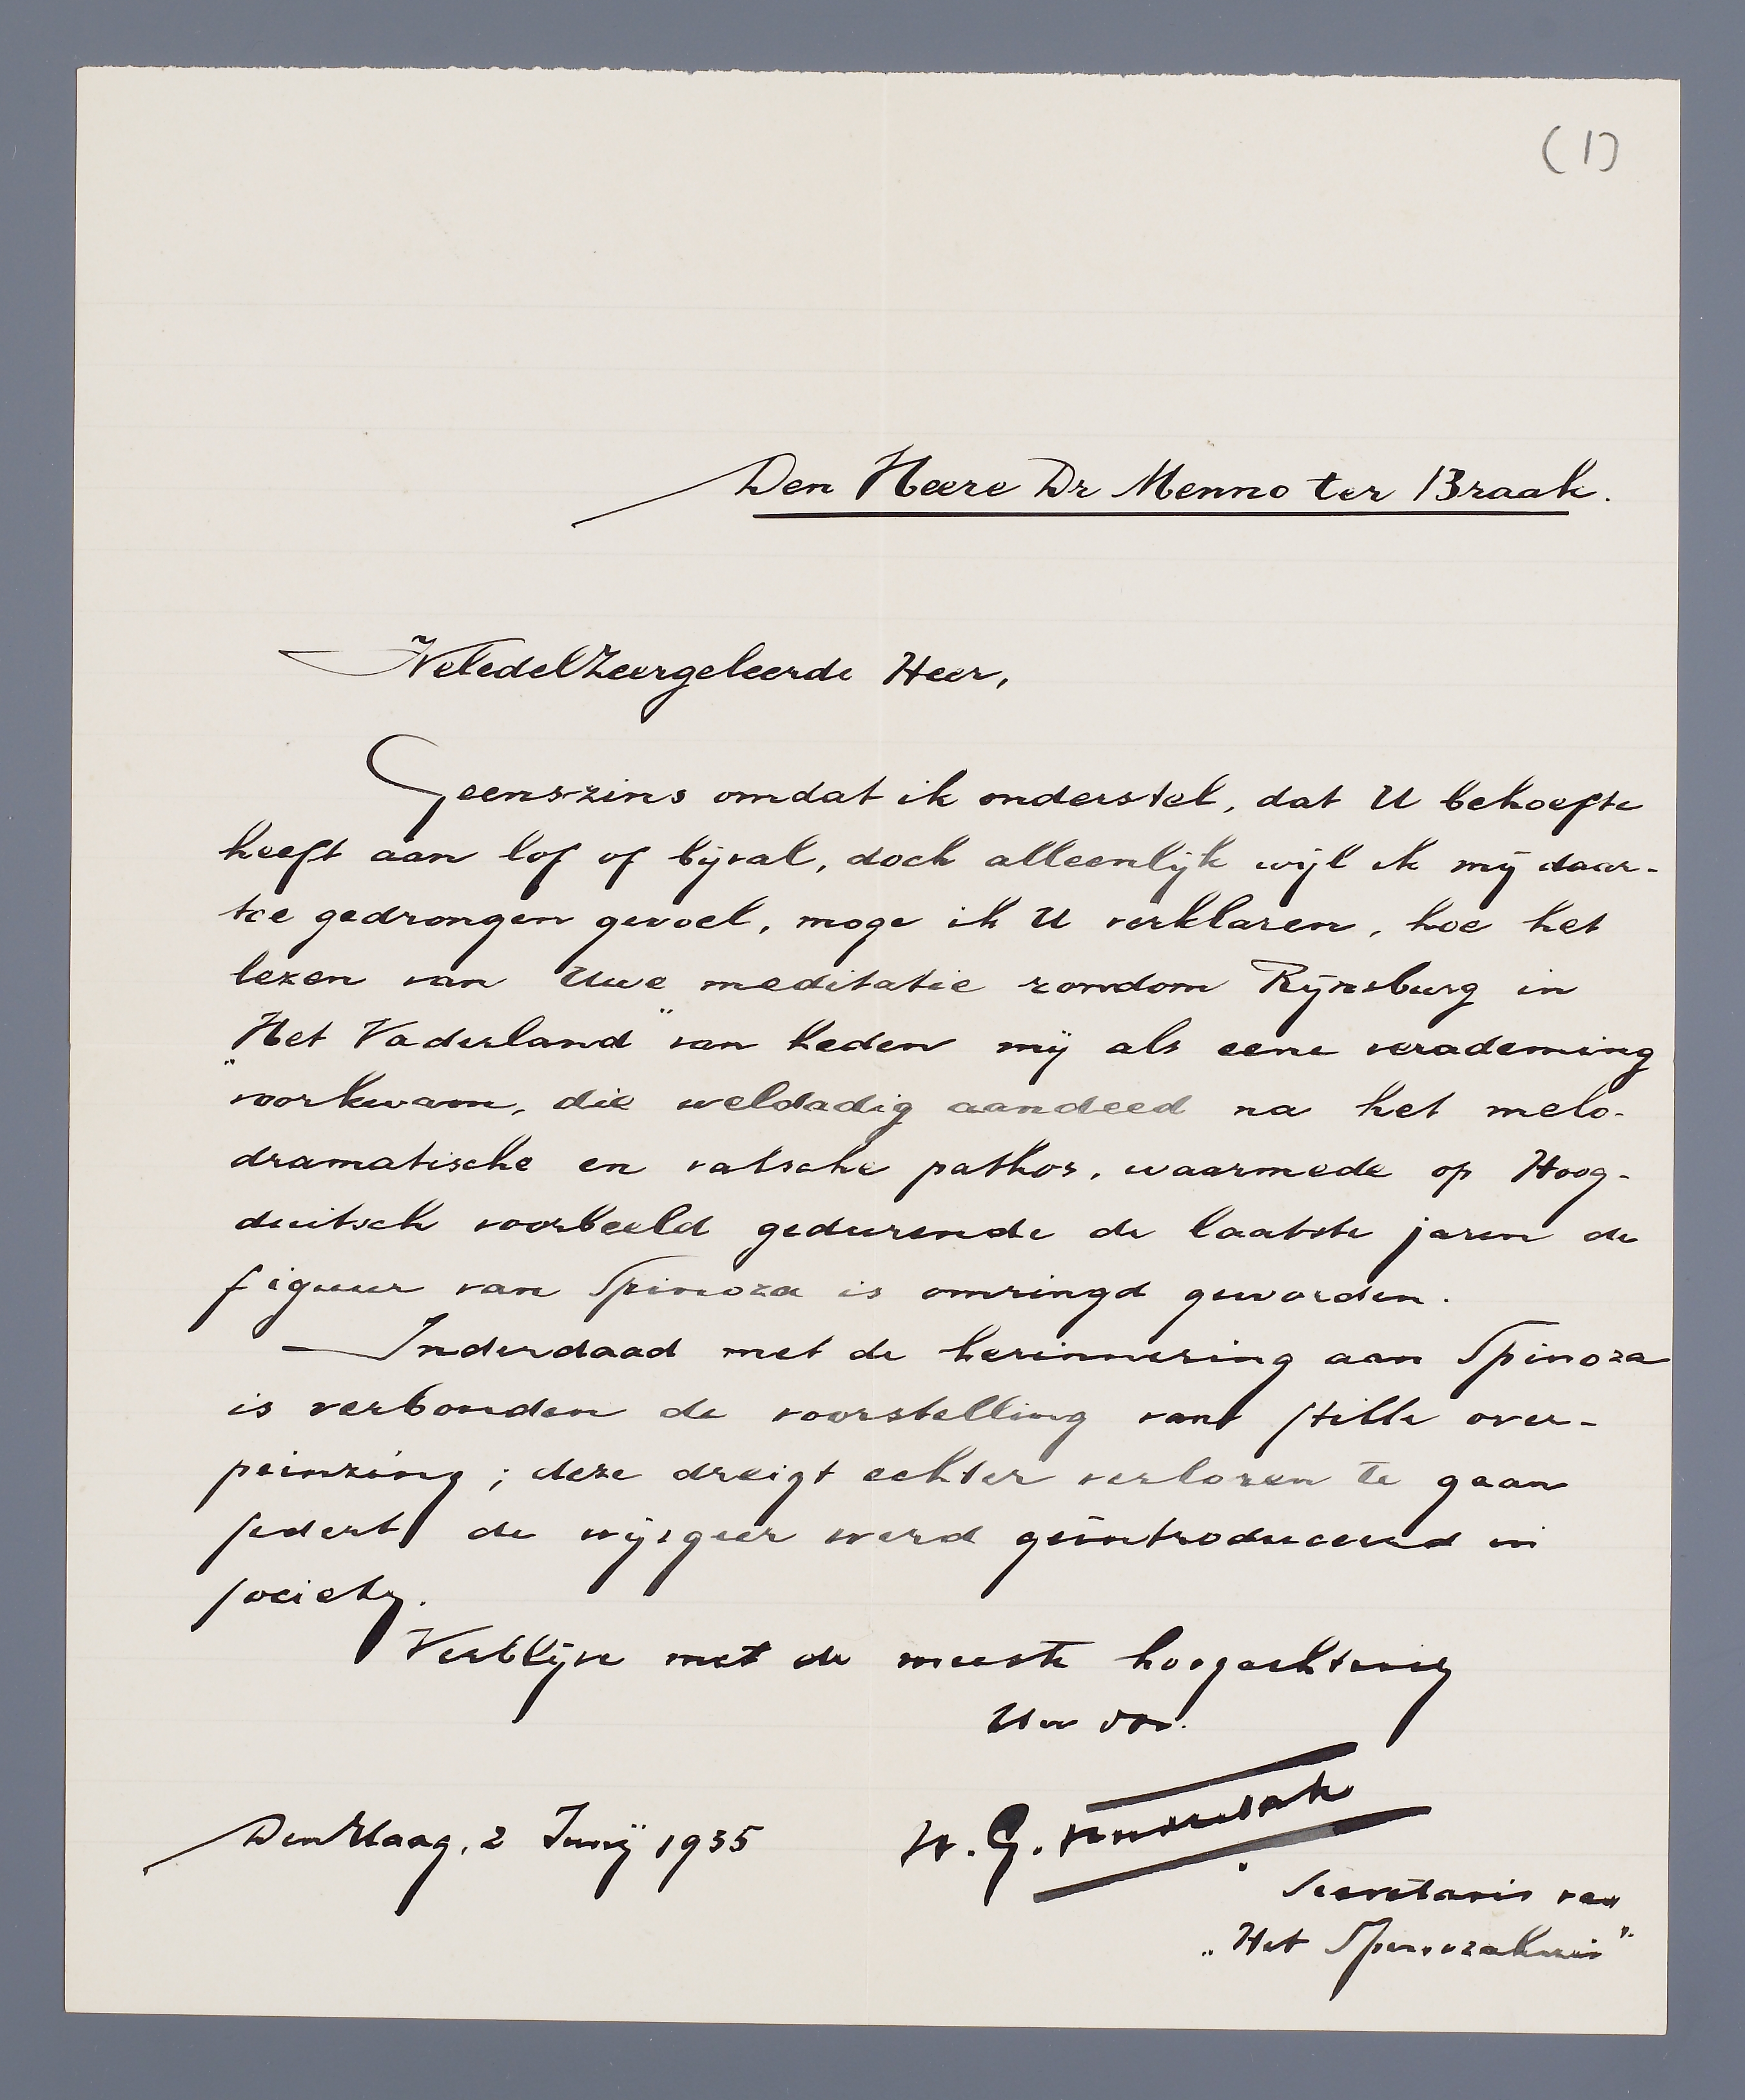 (1)
Den Heere Dr Menno ter Braak.
WeledelZeergeleerde Heer,
Geenszins omdat ik onderstel, dat U behoefte
heeft aan lof of bijval, doch alleenlijk wijl ik mij daar-
toe gedrongen gevoel, moge ik U verklaren, hoe het
lezen van Uwe meditatie rondom Rijnsburg in
„Het Vaderland” van heden mij als eene verademing
voorkwam, die weldadig aandeed na het melo-
dramatische en valsche pathos, waarmede op Hoog-
duitsch voorbeeld gedurende de laatste jaren de
figuur van Spinoza is omringd geworden.
Inderdaad met de herinnering aan Spinoza
is verbonden de voorstelling van stille over-
peinzing; deze dreigt echter verloren te gaan
sedert de wijsgeer werd geïntroduceerd in
society.
Verblijve met de meeste hoogachting
Uw
Den Haag, 2 Junij 1935
G.
Secretaris van
„Het Spinozahuis”